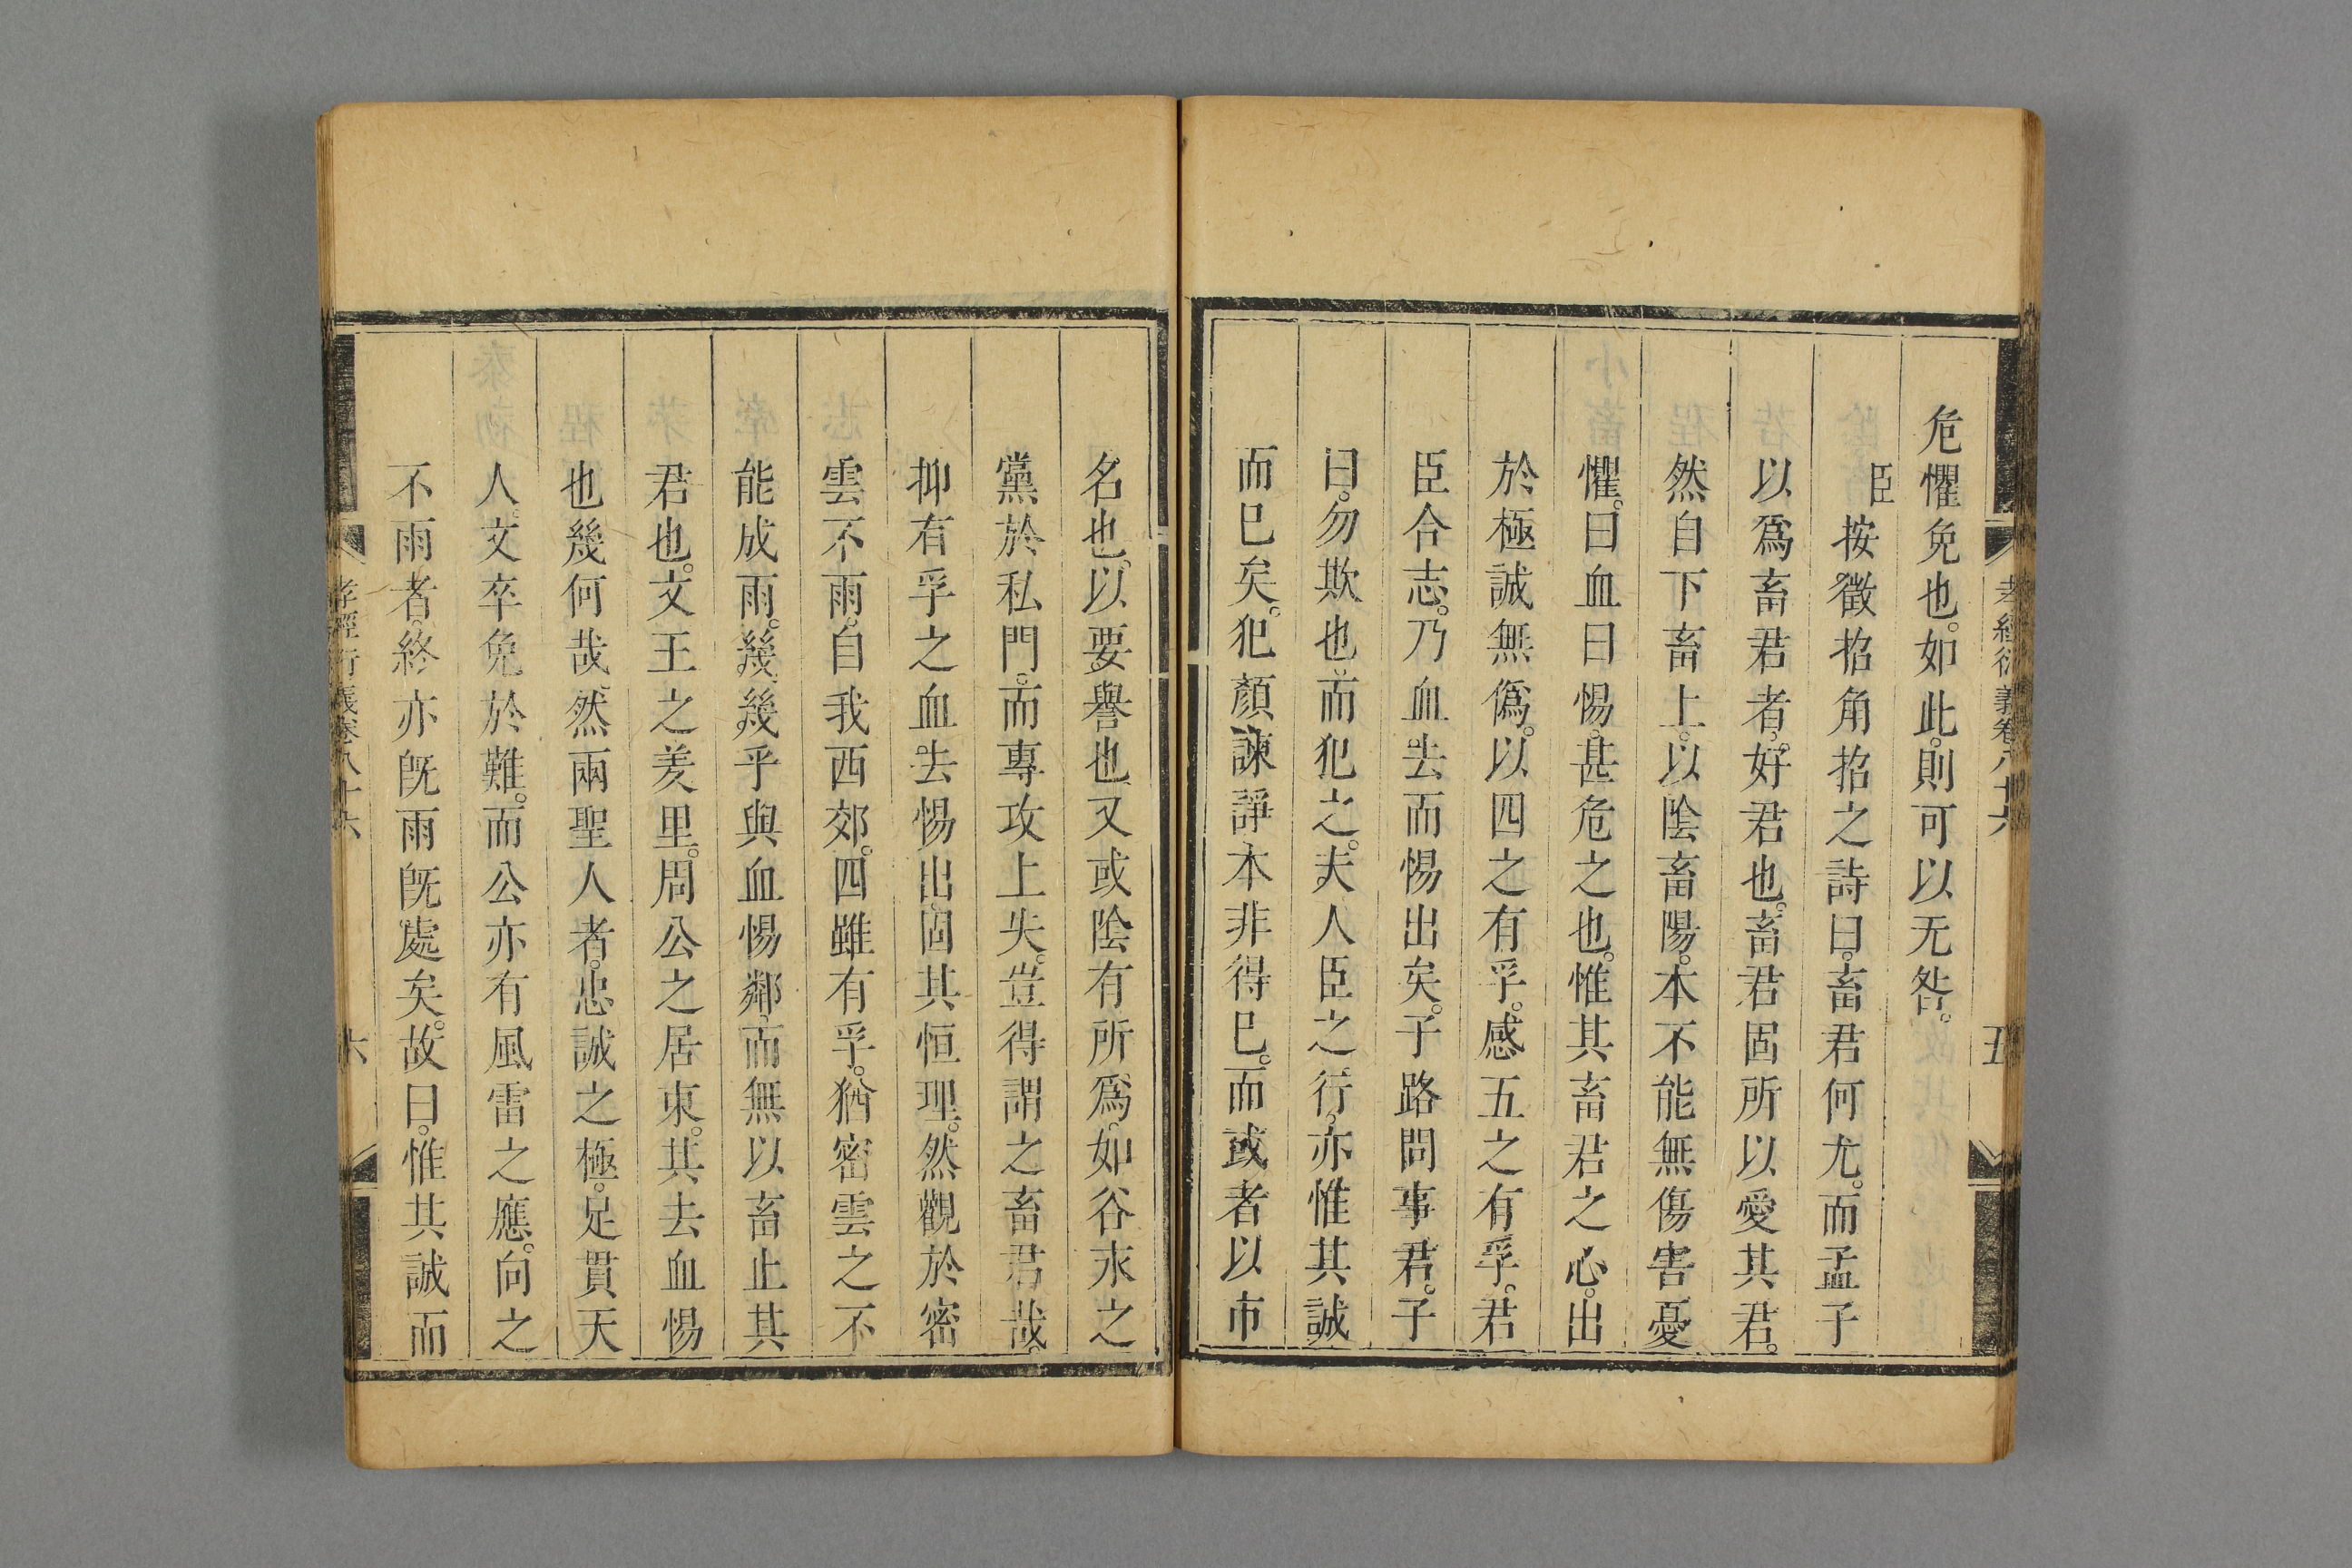 孝經衍義卷八十六 五
危懼免也。如此。則可以无咎。
臣按徵招角招之詩曰。畜君何尤。而孟子
以爲畜君者。好君也。畜君固所以愛其君。
然自下畜上。以陰畜陽。本不能無傷害憂
懼。曰血曰惕。甚危之也。惟其畜君之心。出
於極誠無僞。以四之有孚。感五之有孚。君
臣合志。乃血去而惕出矣。子路問事君。子
曰。勿欺也。而犯之。夫人臣之行。亦惟其誠
而已矣。犯顏諫諍。本非得已。而或者以市
名也。以要譽也。又或陰有所爲。如谷永之
黨於私門。而專攻上失。豈得謂之畜君哉。
抑有孚之血去惕出。固其恒理。然觀於密
雲不雨。自我西郊。四雖有孚。猶密雲之不
能成雨。幾幾乎與血惕鄰。而無以畜止其
君也。文王之羑里。周公之居東。其去血惕
也幾何哉。然兩聖人者。忠誠之極。足貫天
人。文卒免於難。而公亦有風雷之應。向之
不雨者。終亦旣雨旣處矣。故曰。惟其誠而
孝經衍義卷八十六 六